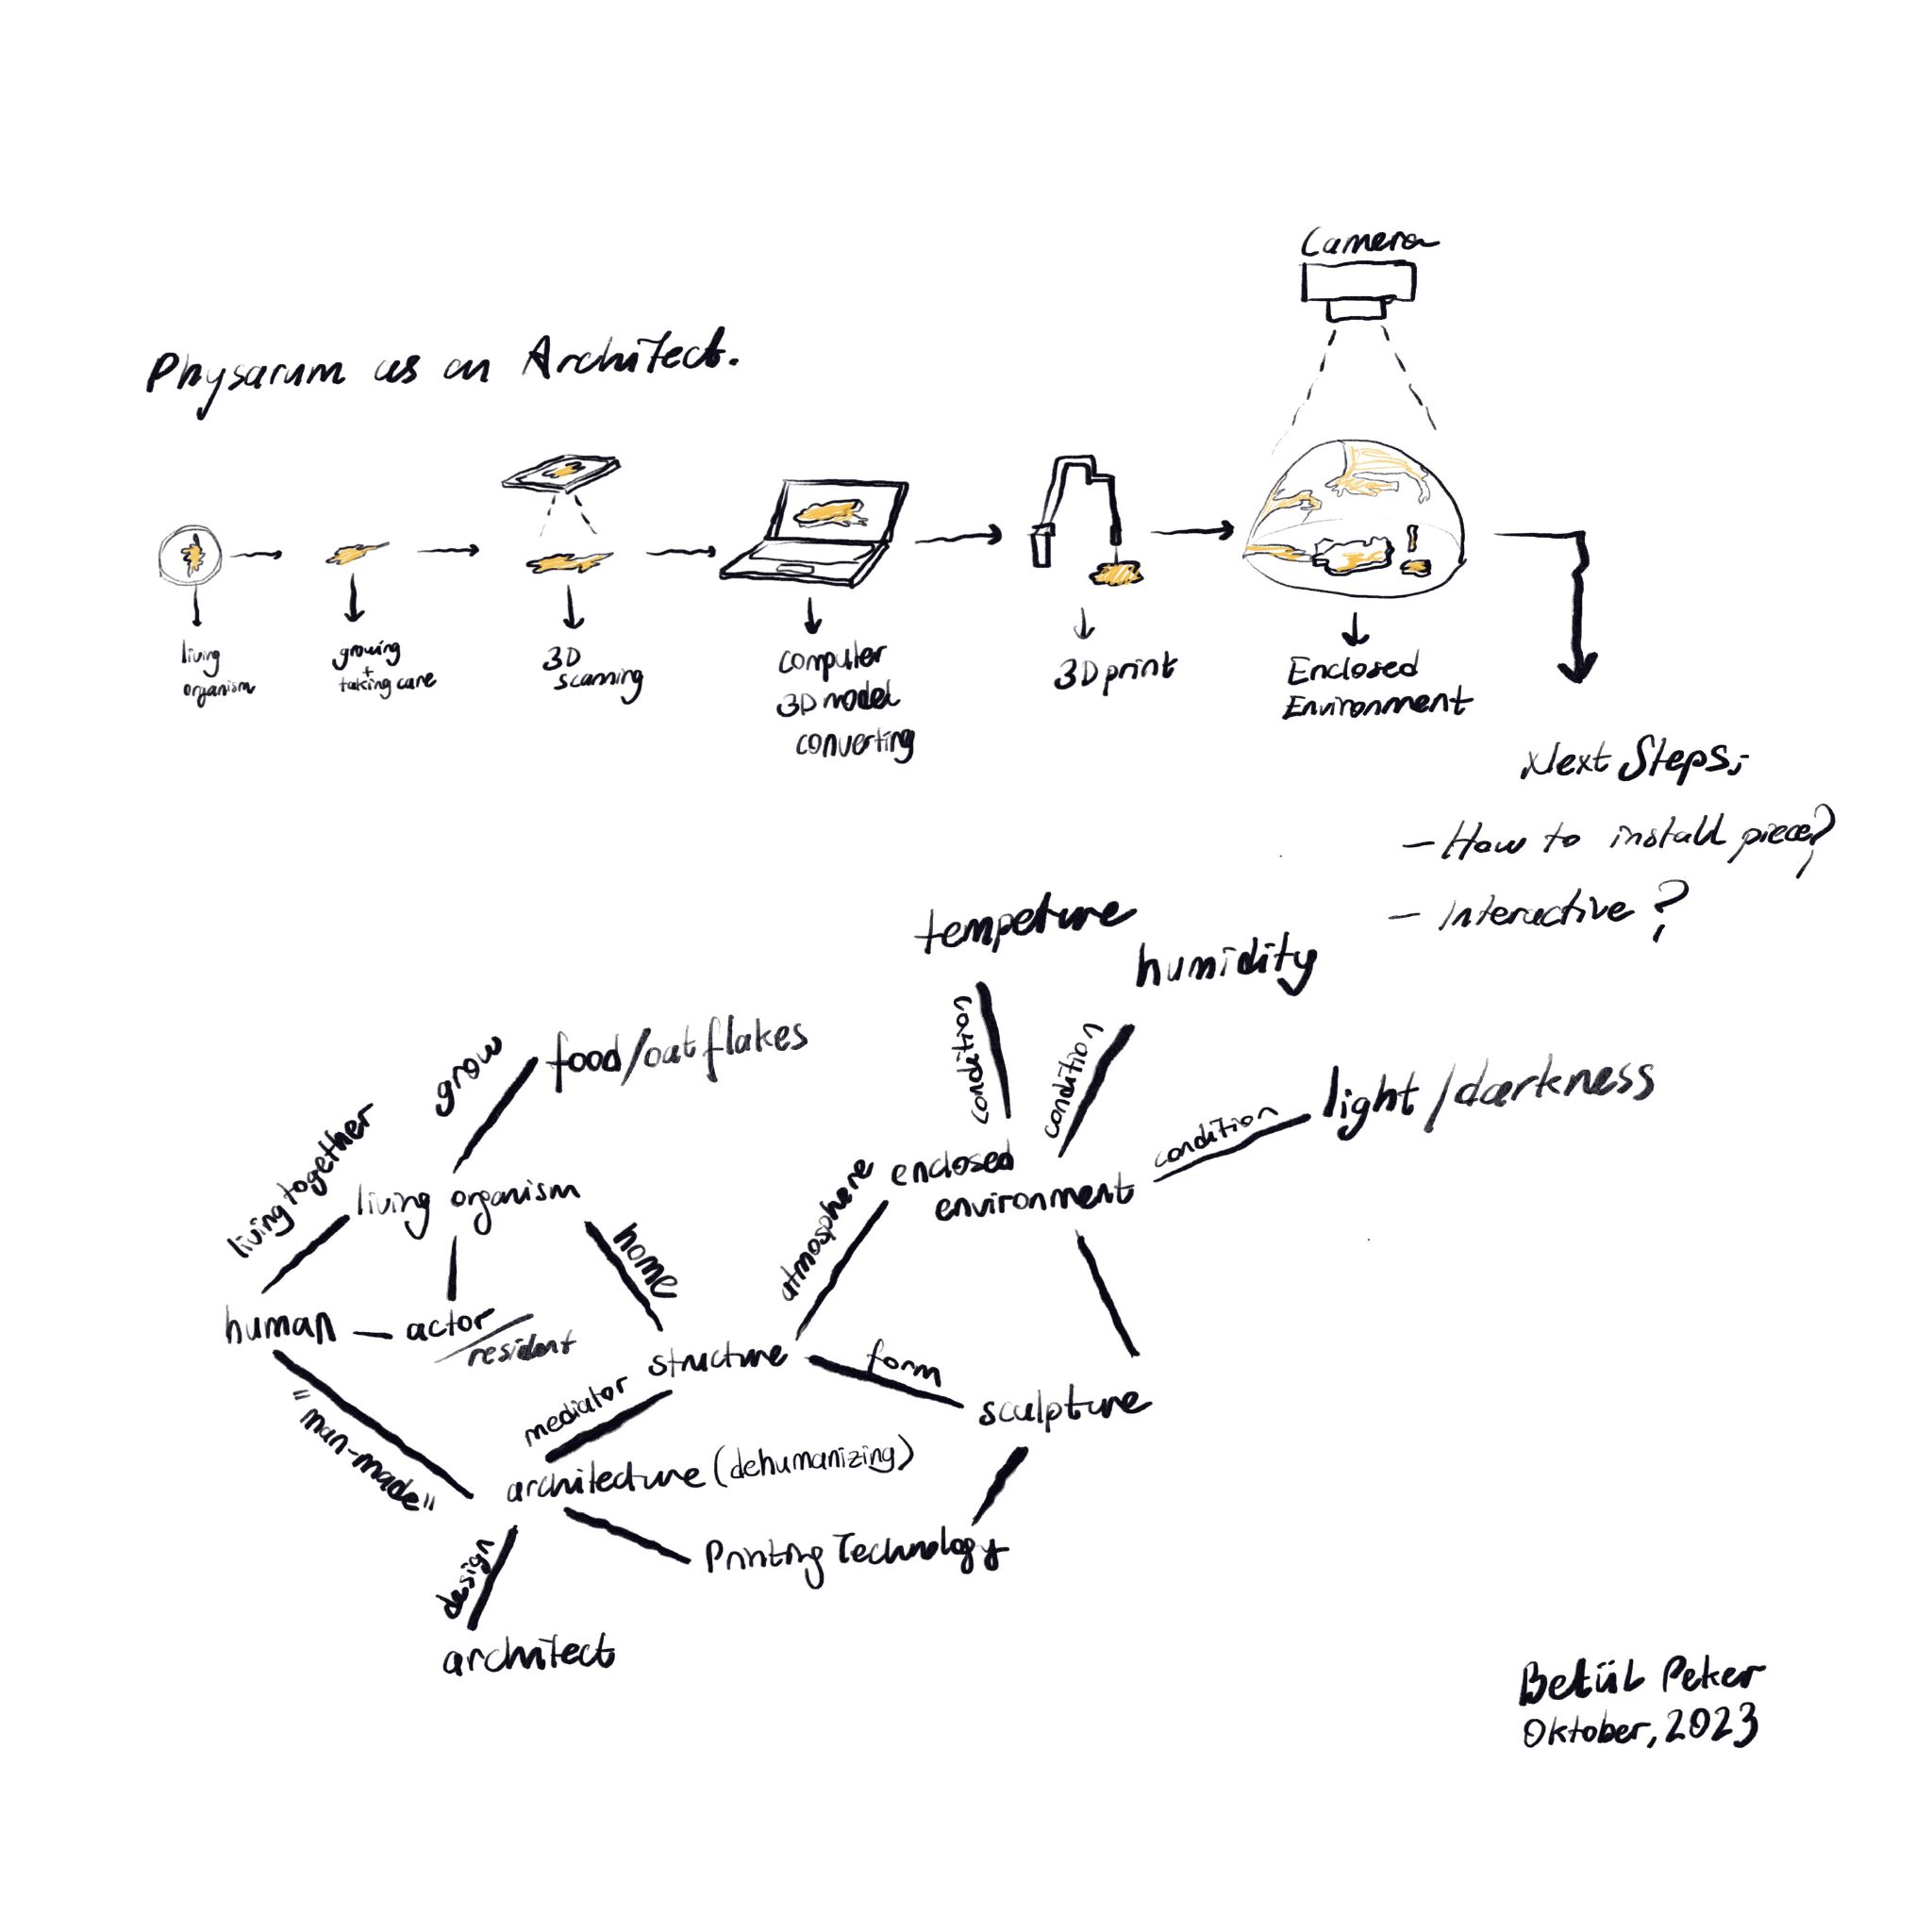 Camera
Physarum as an Architect.
living
organism
growing
+
taking care
3D
scanning
computer
3D model
converting
3D print
Enclosed
Environment
Next Steps;
- How to install piece?
- Interactive ?
tempeture
humidity
condition
condition
condition
light/darkness
grow
food/oat flakes
living together
living organism
home
atmosphere
enclosed
environment
human
actor
/resident
structure
form
sculpture
mediator
"man-made"
architecture (dehumanizing)
Printing Technology
design
architect
Betül Peker
Oktober, 2023